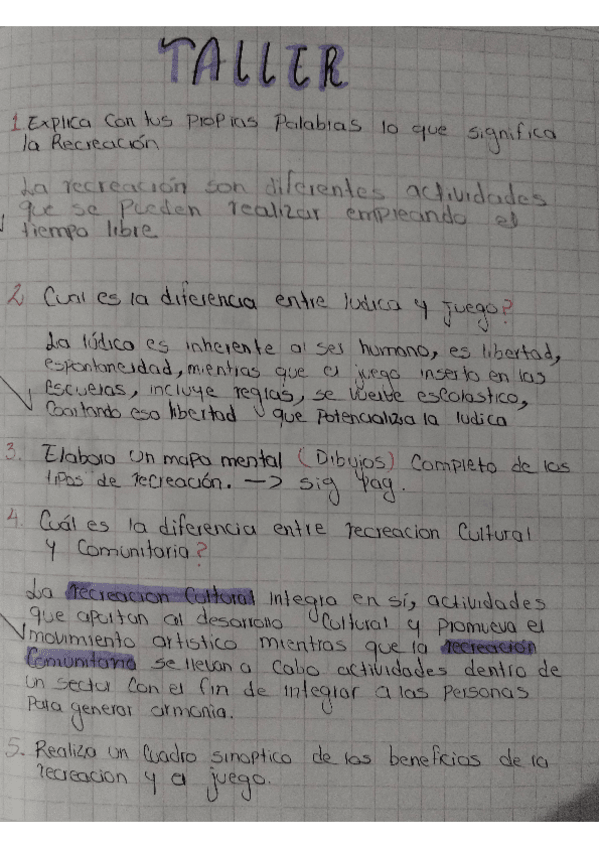 TALLER
1. Explica con tus propias palabras lo que significa
la Recreación
La recreación son diferentes actividades
que se pueden realizar empleando el
tiempo libre
2 Cual es la diferencia entre ludica y juego?
La lúdica es inherente al ser humano, es libertad,
espontaneidad, mientras que el juego inserto en las
escuelas, incluye reglas, se vuelve escolastico,
coartando esa libertad que potencializa la ludica
3. Elabora un mapa mental (Dibujos) completo de los
tipos de recreación. -> sig pag.
4. Cuál es la diferencia entre recreacion Cultural
y Comunitaria?
La recreacion Cultural integra en sí, actividades
que aportan al desarrollo Cultural y promueva el
movimiento artistico mientras que la recreación
Comunitaria se llevan a cabo actividades dentro de
un sector con el fin de integrar a las personas
para generar armonia.
5. Realiza un cuadro sinoptico de los beneficios de la
recreacion y el juego.